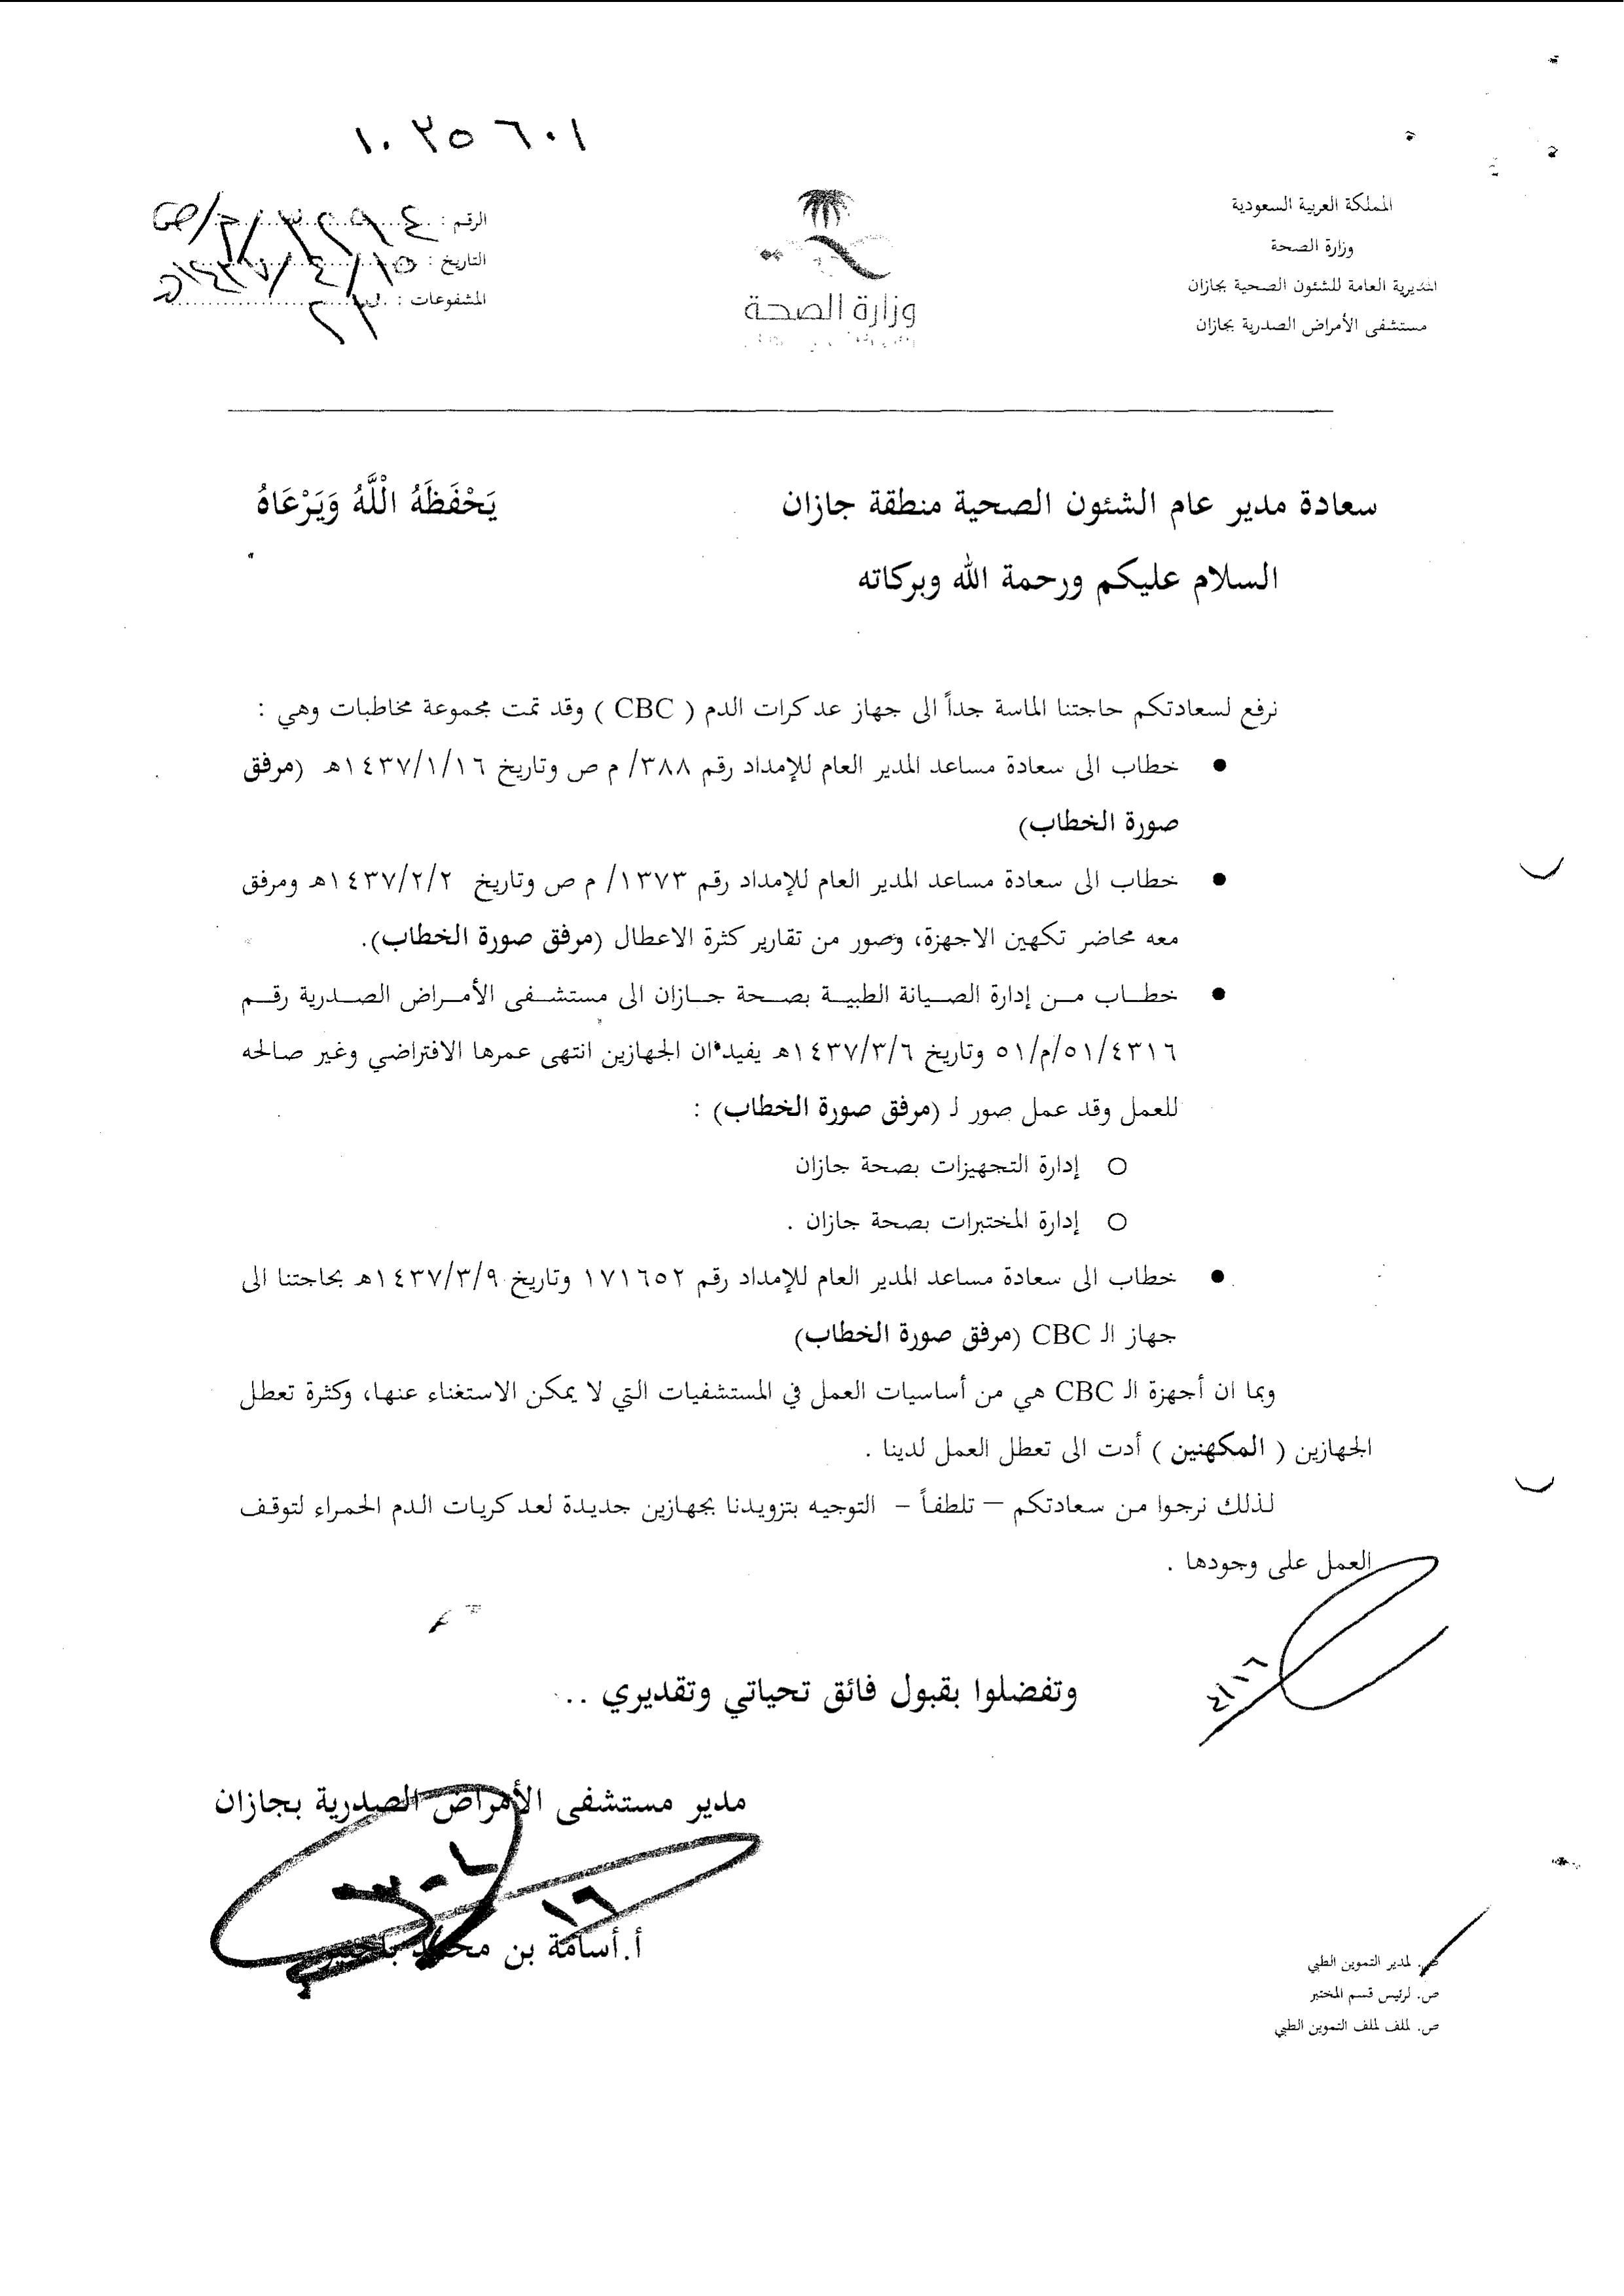 ١٠٢٥٦٠١
المملكة العربية السعودية
وزارة الصحة
المديرية العامة للشئون الصحية بجازان
مستشفى الأمراض الصدرية بجازان
وزارة الصحة
الرقم :
التاريخ : ١٤٣٧/٤/١٥هـ
المشفوعات :
سعادة مدير عام الشئون الصحية منطقة جازان يَحْفَظَهُ الْلَّهُ وَيَرْعَاهُ
السلام عليكم ورحمة الله وبركاته
نرفع لسعادتكم حاجتنا الماسة جداً الى جهاز عد كرات الدم ( CBC ) وقد تمت مجموعة مخاطبات وهي :
● خطاب الى سعادة مساعد المدير العام للإمداد رقم ٣٨٨/ م ص وتاريخ ١٤٣٧/١/١٦هـ (مرفق
صورة الخطاب)
● خطاب الى سعادة مساعد المدير العام للإمداد رقم ١٣٧٣/ م ص وتاريخ ١٤٣٧/٢/٢هـ ومرفق
معه محاضر تكهين الاجهزة، وصور من تقارير كثرة الاعطال (مرفق صورة الخطاب).
● خطاب من إدارة الصيانة الطبية بصحة جازان الى مستشفى الأمراض الصدرية رقم
٥١/م/٥١/٤٣١٦ وتاريخ ١٤٣٧/٣/٦هـ يفيد ان الجهازين انتهى عمرها الافتراضي وغير صالحه
للعمل وقد عمل صور لـ (مرفق صورة الخطاب) :
○ إدارة التجهيزات بصحة جازان
○ إدارة المختبرات بصحة جازان .
● خطاب الى سعادة مساعد المدير العام للإمداد رقم ١٧١٦٥٢ وتاريخ ١٤٣٧/٣/٩هـ بحاجتنا الى
جهاز الـ CBC (مرفق صورة الخطاب)
وبما ان أجهزة الـ CBC هي من أساسيات العمل في المستشفيات التي لا يمكن الاستغناء عنها، وكثرة تعطل
الجهازين ( المكهنين ) أدت الى تعطل العمل لدينا .
لذلك نرجوا من سعادتكم – تلطفاً – التوجيه بتزويدنا بجهازين جديدة لعد كريات الدم الحمراء لتوقف
العمل على وجودها .
٤/١٦
وتفضلوا بقبول فائق تحياتي وتقديري ..
مدير مستشفى الأمراض الصدرية بجازان
أ.أسامة بن محمد
ص. لمدير التموين الطبي
ص. لرئيس قسم المختبر
ص. لملف لملف التموين الطبي